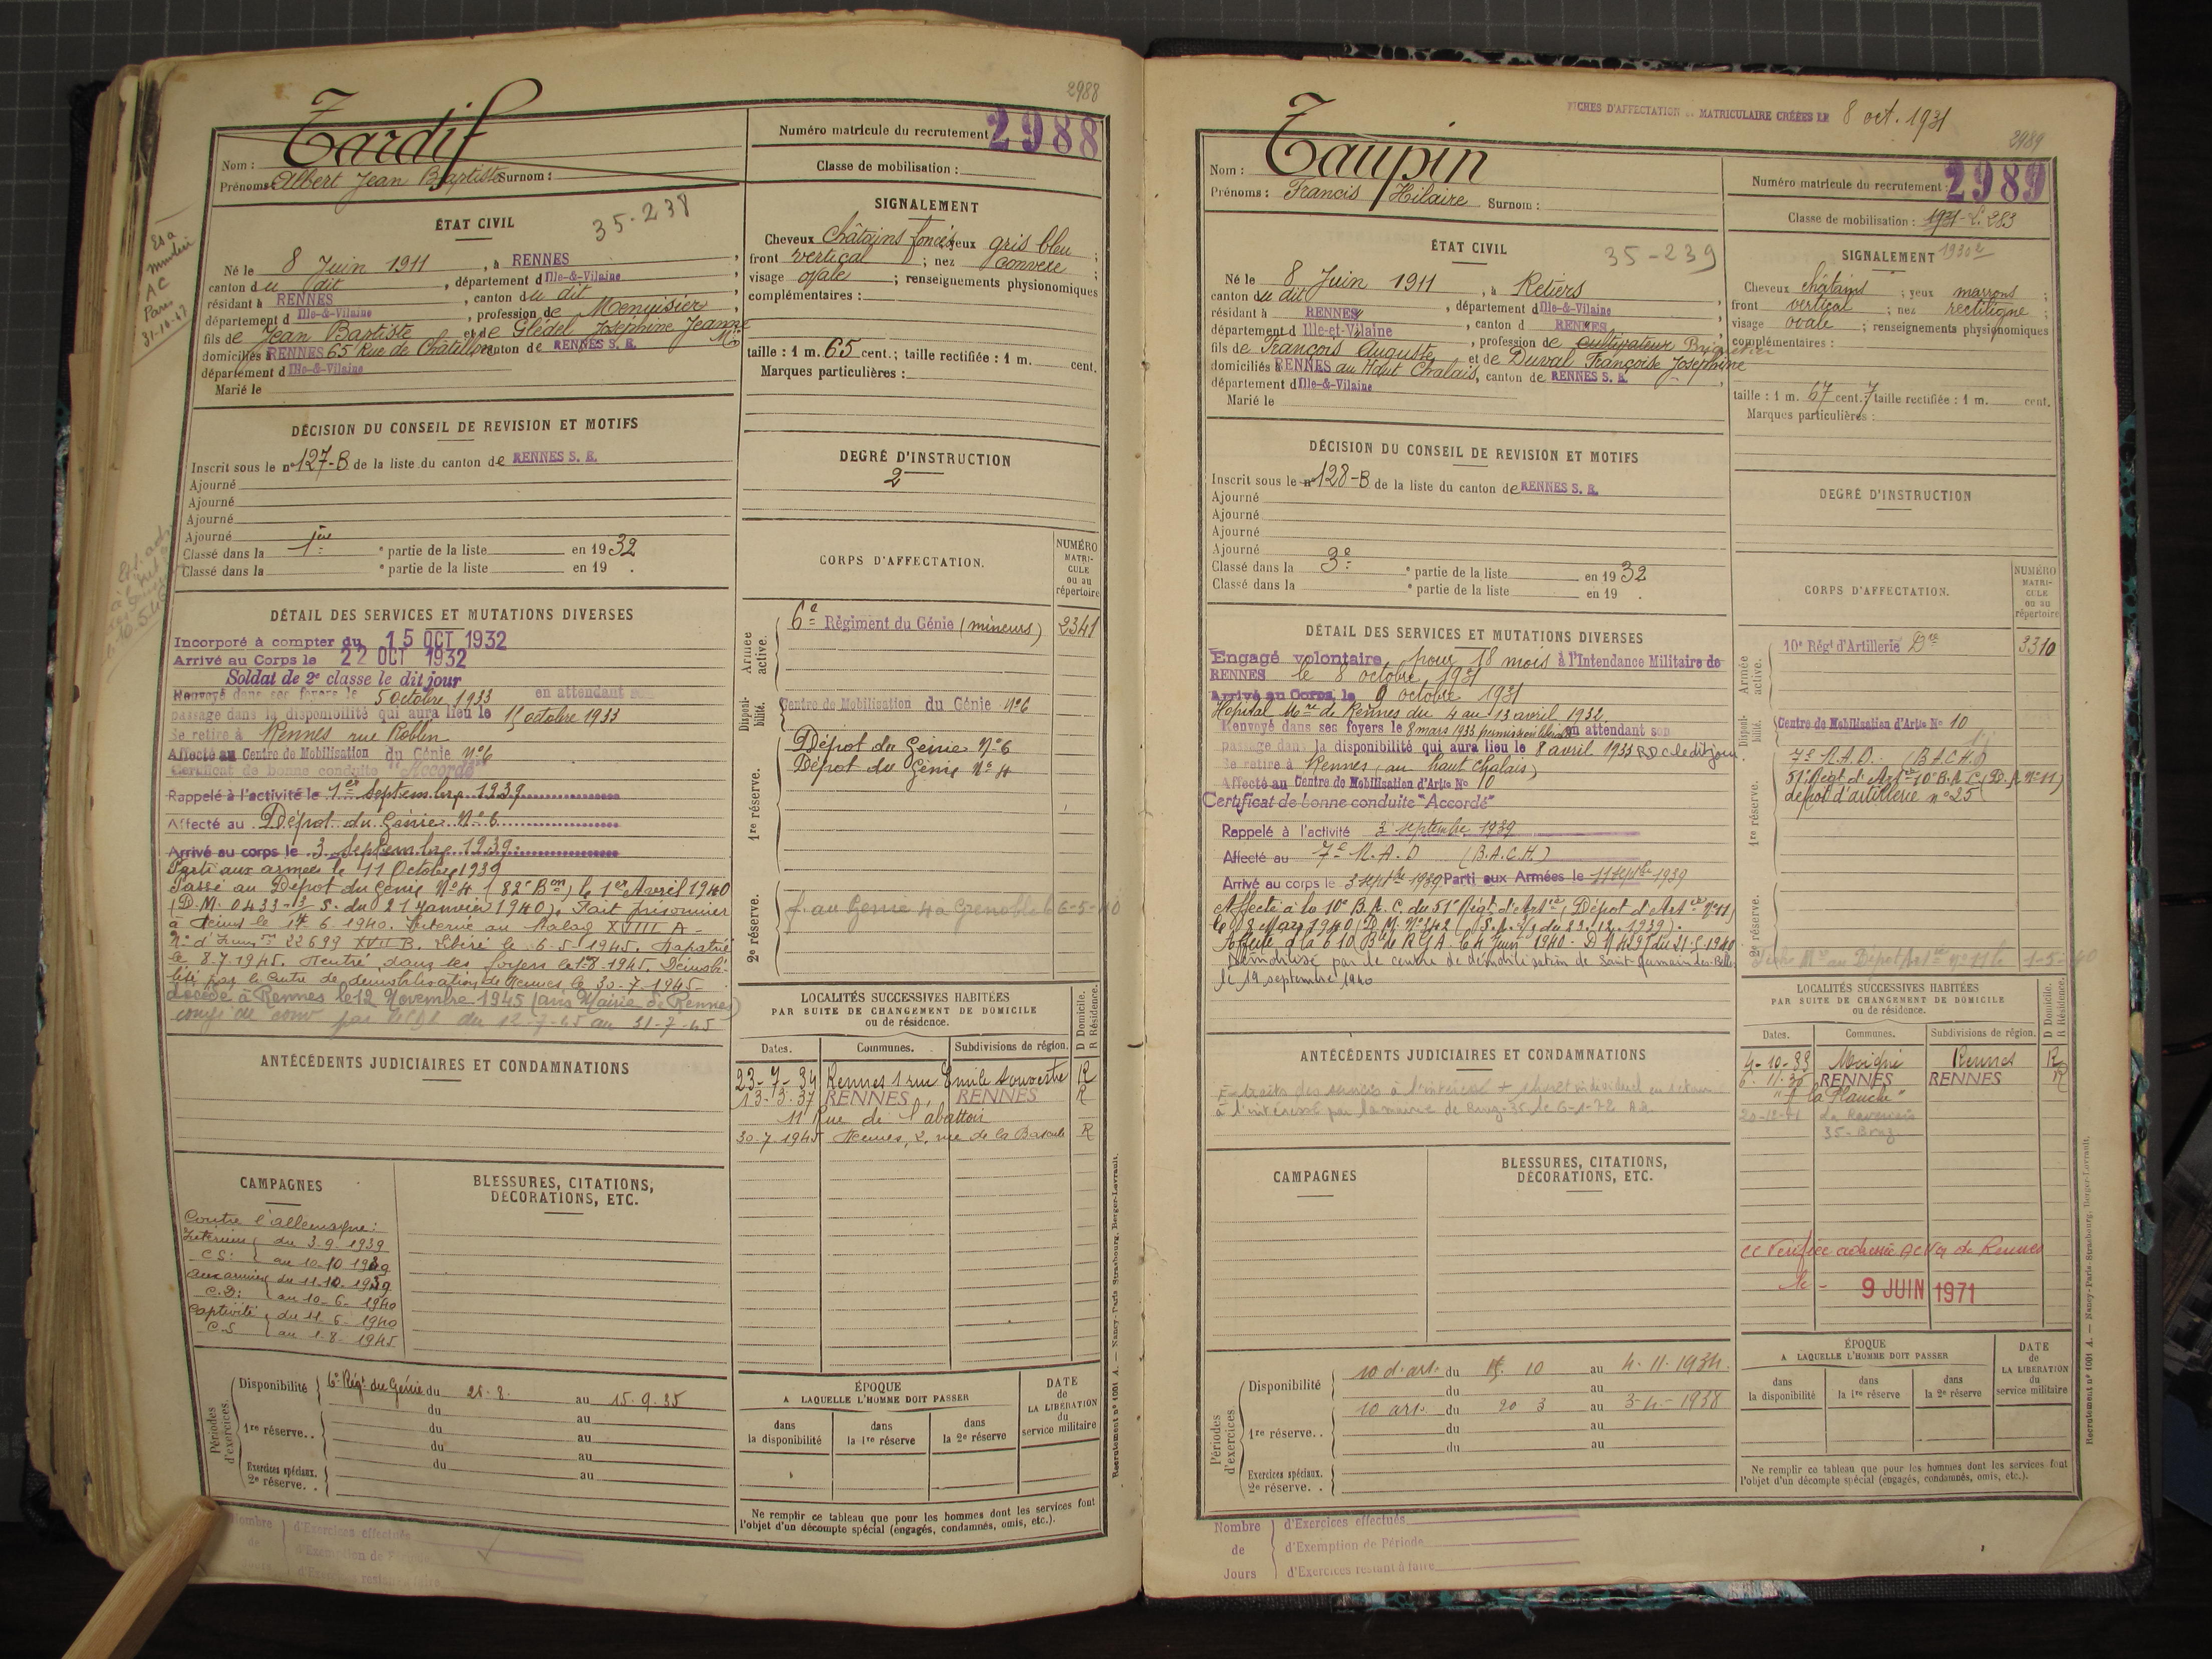 2988
Tardif
Nom :
Prénoms : Albert Jean Baptiste Surnom :
Numéro matricule du recrutement : 2988
Classe de mobilisation :
ÉTAT CIVIL
35-238
Né le 8 Juin 1911, à RENNES,
canton du dit, département d Ille-&-Vilaine,
résidant à RENNES, canton du dit,
département d Ille-&-Vilaine, profession de Menuisier
fils de Jean Baptiste et de Glédel Joséphine Jeanne
domiciliés à RENNES 65 Rue de Châtillon canton de RENNES S. E.
département d Ille-&-Vilaine
Marié le
SIGNALEMENT
Cheveux châtains foncés yeux gris bleu ;
front vertical ; nez convexe ;
visage ovale ; renseignements physionomiques
complémentaires :
taille : 1 m. 65 cent. ; taille rectifiée : 1 m. cent.
Marques particulières :
DÉCISION DU CONSEIL DE REVISION ET MOTIFS
Inscrit sous le nº 127-B de la liste du canton de RENNES S. E.
Ajourné
Ajourné
Ajourné
Ajourné
Classé dans la 1ère partie de la liste en 1932
Classé dans la e partie de la liste en 19 .
DEGRÉ D'INSTRUCTION
2
DÉTAIL DES SERVICES ET MUTATIONS DIVERSES
Incorporé à compter du 15 OCT 1932
Arrivé au Corps le 22 OCT 1932
Soldat de 2e classe le dit jour
Renvoyé dans ses foyers le 5 octobre 1933 en attendant son
passage dans la disponibilité qui aura lieu le 15 octobre 1933
Se retire à Rennes rue Roblin
Affecté au Centre de Mobilisation du Génie Nº 6
Certificat de bonne conduite "Accordé"
Rappelé à l'activité le 1er Septembre 1939
Affecté au Dépot du Génie Nº 6
Arrivé au corps le 3 Septembre 1939
Parti aux armées le 11 Octobre 1939
Passé au Dépot du Génie Nº 4 (82e Bon) le 1er Avril 1940
(D.M. 0433-3/S. du 21 Janvier 1940). Fait prisonnier
à Reims le 14 6 1940. Interné au Stalag XVIII A -
Nº d'Immre 22699 XVII B. Libéré le 6-5-1945. Rapatrié
le 8.7.1945. Rentré dans ses foyers le 1-8-1945. Démobi-
lisé par le Centre de démobilisation de Rennes le 30-7-1945-
décédé à Rennes le 12 Novembre 1945 (avis Mairie de Rennes)
congé de conv du 12-7-45 au 31-7-45
CORPS D'AFFECTATION.
NUMÉRO MATRI-CULE ou au répertoire
Armée active.
6e Régiment du Génie (mineurs) 2341
Disponi-bilité.
Centre de Mobilisation du Génie Nº 6
1re réserve.
Dépot du Génie Nº 6
Dépot du Génie Nº 4
2e réserve.
f. au Génie 4 à Grenoble le 6-5-40
ANTÉCÉDENTS JUDICIAIRES ET CONDAMNATIONS
LOCALITÉS SUCCESSIVES HABITÉES
PAR SUITE DE CHANGEMENT DE DOMICILE
ou de résidence.
D Domicile.
R Résidence.
Dates. Communes. Subdivisions de région.
23-7-34 Rennes 1 rue Emile Souvestre R
13-3-37 RENNES RENNES R
11 Rue de l'abattoir
30.7.1945 Rennes, 2, rue de la Bascule R
CAMPAGNES
Contre l'allemagne :
Intérieur du 3.9.1939
C.S: au 10-10 1939
aux armées du 11.10.1939
C.D: au 10-6-1940
Captivité du 11-6-1940
C.S au 1-8-1945
BLESSURES, CITATIONS,
DÉCORATIONS, ETC.
Périodes d'exercices.
Disponibilité 6e Régt du Génie du 26.8. au 15.9.35
du au
1re réserve. . du au
du au
du au
Exercices spéciaux.
2e réserve. .
ÉPOQUE
A LAQUELLE L'HOMME DOIT PASSER
dans la disponibilité
dans la 1re réserve
dans la 2e réserve
DATE de LA LIBÉRATION du service militaire
Ne remplir ce tableau que pour les hommes dont les services font
l'objet d'un décompte spécial (engagés, condamnés, omis, etc.).
Recrutement nº 1001 A. — Nancy-Paris-Strasbourg. Berger-Levrault.
Nombre de Jours
d'Exercices effectués
d'Exemption de Période
d'Exercices restant à faire
FICHES D'AFFECTATION MATRICULAIRE CRÉÉES LE 8 oct. 1931
2989
Taupin
Nom :
Prénoms : Francis Hilaire Surnom :
Numéro matricule du recrutement : 2989
Classe de mobilisation : 1931
ÉTAT CIVIL
35-239
Né le 8 Juin 1911, à Retiers
canton du dit, département d Ille-&-Vilaine,
résidant à RENNES, canton d RENNES
département d Ille-et-Vilaine, profession de cultivateur Briquetier
fils de François Auguste et de Duval Françoise Joséphine
domiciliés à RENNES au Haut Chalais, canton de RENNES S. E.
département d Ille-&-Vilaine
Marié le
SIGNALEMENT
Cheveux châtains ; yeux marrons ;
front vertical ; nez rectiligne ;
visage ovale ; renseignements physionomiques
complémentaires :
taille : 1 m. 67 cent. 7 taille rectifiée : 1 m. cent.
Marques particulières :
DÉCISION DU CONSEIL DE REVISION ET MOTIFS
Inscrit sous le nº 128-B de la liste du canton de RENNES S. E.
Ajourné
Ajourné
Ajourné
Ajourné
Classé dans la 3e partie de la liste en 1932
Classé dans la e partie de la liste en 19 .
DEGRÉ D'INSTRUCTION
DÉTAIL DES SERVICES ET MUTATIONS DIVERSES
Engagé volontaire, pour 18 mois à l'Intendance Militaire de
RENNES le 8 octobre 1931
Arrivé au Corps le 9 octobre 1931
Hopital Mre de Rennes du 4 au 13 avril 1932.
Renvoyé dans ses foyers le 8 mars 1933 permission libérable en attendant son
passage dans la disponibilité qui aura lieu le 8 avril 1933 RDC le dit jour
Se retire à Rennes (au haut Chalais)
Affecté au Centre de Mobilisation d'Artie Nº 10
Certificat de bonne conduite "Accordé"
Rappelé à l'activité 3 septembre 1939
Affecté au 7e R.A.D (B.A.C.H.)
Arrivé au corps le 3 septbre 1939 Parti aux Armées le 11 septbre 1939
Affecté à la 10e B.A.C. du 51e Régt d'Artie (Dépot d'Artie Nº 11)
le 8 Mars 1940 (D.M. Nº 142 du 23.12.1939).
Affecté à la 610 Bie de RGA le 4 Juin 1940
Démobilisé par le centre de démobilisation de Saint-Germain-des-Belles
le 19 septembre 1940
CORPS D'AFFECTATION.
NUMÉRO MATRI-CULE ou au répertoire
Armée active.
10e Régt d'Artillerie Dre 3310
Disponi-bilité.
Centre de Mobilisation d'Artie Nº 10
1re réserve.
7e R.A.D. (B.A.C.H.)
51e Régt d'Artie 10e B.A.C. (D.A. Nº 11)
dépot d'artillerie nº 25
2e réserve.
ANTÉCÉDENTS JUDICIAIRES ET CONDAMNATIONS
à l'intéressé par la mairie de Bruz-35 le 6-1-72
LOCALITÉS SUCCESSIVES HABITÉES
PAR SUITE DE CHANGEMENT DE DOMICILE
ou de résidence.
D Domicile.
R Résidence.
Dates. Communes. Subdivisions de région.
4-10-33 Moigné Rennes R
6.11.36 RENNES RENNES R
"la Planche"
35-Bruz
CAMPAGNES
BLESSURES, CITATIONS,
DÉCORATIONS, ETC.
de Rennes
le - 9 JUIN 1971
Périodes d'exercices.
Disponibilité 10 d'art. du 15. 10 au 4.11.1934.
du au
1re réserve. . 10 art. du 20 3 au 3-4-1938
du au
du au
Exercices spéciaux.
2e réserve. .
ÉPOQUE
A LAQUELLE L'HOMME DOIT PASSER
dans la disponibilité
dans la 1re réserve
dans la 2e réserve
DATE de LA LIBÉRATION du service militaire
Ne remplir ce tableau que pour les hommes dont les services font
l'objet d'un décompte spécial (engagés, condamnés, omis, etc.).
Recrutement nº 1001 A. — Nancy-Paris-Strasbourg. Berger-Levrault.
Nombre de Jours
d'Exercices effectués
d'Exemption de Période
d'Exercices restant à faire